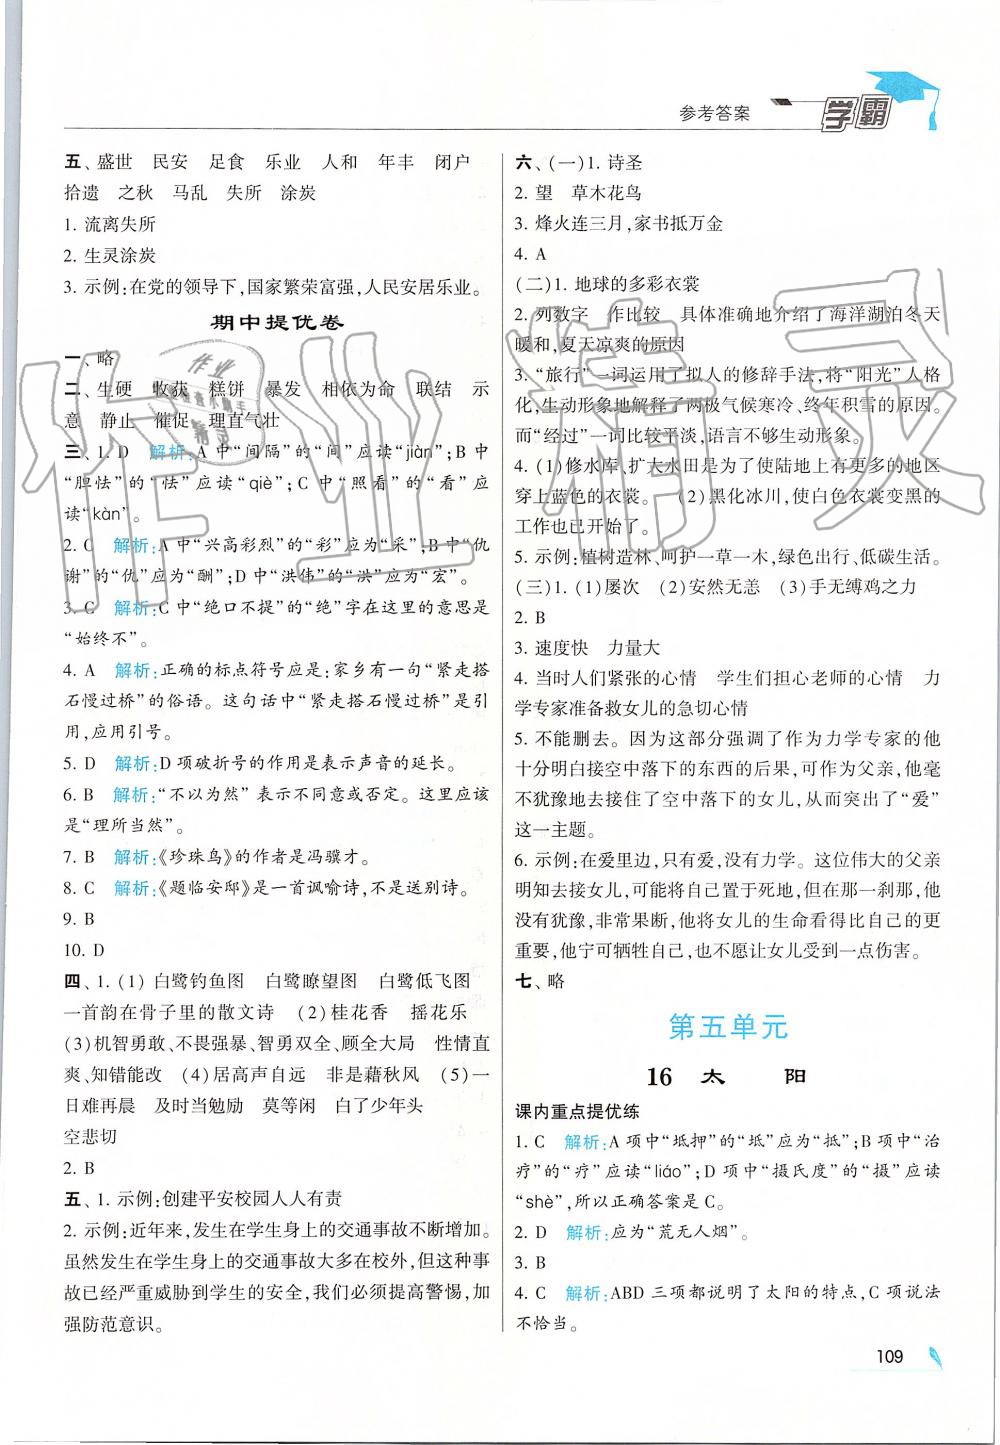 参考答案
学霸
五、盛世 民安 足食 乐业 人和 年丰 闭户
拾遗 之秋 马乱 失所 涂炭
1. 流离失所
2. 生灵涂炭
3. 示例:在党的领导下,国家繁荣富强,人民安居乐业。
期中提优卷
一、略
二、生硬 收获 糕饼 暴发 相依为命 联结 示
意 静止 催促 理直气壮
三、1. D 解析:A 中“间隔”的“间”应读“jiàn”;B 中
“胆怯”的“怯”应读“qiè”;C 中“照看”的“看”应
读“kàn”。
2. C 解析:A 中“兴高彩烈”的“彩”应为“采”;B 中“仇
谢”的“仇”应为“酬”;D 中“洪伟”的“洪”应为“宏”。
3. C 解析:C 中“绝口不提”的“绝”字在这里的意思是
“始终不”。
4. A 解析:正确的标点符号应是:家乡有一句“紧走搭
石慢过桥”的俗语。这句话中“紧走搭石慢过桥”是引
用,应用引号。
5. D 解析:D 项破折号的作用是表示声音的延长。
6. B 解析:“不以为然”表示不同意或否定。这里应该
是“理所当然”。
7. B 解析:《珍珠鸟》的作者是冯骥才。
8. C 解析:《题临安邸》是一首讽喻诗,不是送别诗。
9. B
10. D
四、1. (1) 白鹭钓鱼图 白鹭瞭望图 白鹭低飞图
一首韵在骨子里的散文诗 (2)桂花香 摇花乐
(3)机智勇敢、不畏强暴、智勇双全、顾全大局 性情直
爽、知错能改 (4)居高声自远 非是藉秋风 (5)一
日难再晨 及时当勉励 莫等闲 白了少年头
空悲切
2. B
五、1. 示例:创建平安校园人人有责
2. 示例:近年来,发生在学生身上的交通事故不断增加。
虽然发生在学生身上的交通事故大多在校外,但这种事
故已经严重威胁到学生的安全,我们必须提高警惕,加
强防范意识。
六、(一)1. 诗圣
2. 望 草木花鸟
3. 烽火连三月,家书抵万金
4. A
(二)1. 地球的多彩衣裳
2. 列数字 作比较 具体准确地介绍了海洋湖泊冬天
暖和,夏天凉爽的原因
3. “旅行”一词运用了拟人的修辞手法,将“阳光”人格
化,生动形象地解释了两极气候寒冷、终年积雪的原因。
而“经过”一词比较平淡,语言不够生动形象。
4. (1)修水库、扩大水田是为了使陆地上有更多的地区
穿上蓝色的衣裳。 (2)黑化冰川,使白色衣裳变黑的
工作也已开始了。
5. 示例:植树造林、呵护一草一木,绿色出行、低碳生活。
(三)1. (1)屡次 (2)安然无恙 (3)手无缚鸡之力
2. B
3. 速度快 力量大
4. 当时人们紧张的心情 学生们担心老师的心情 力
学专家准备救女儿的急切心情
5. 不能删去。因为这部分强调了作为力学专家的他
十分明白接空中落下的东西的后果,可作为父亲,他毫
不犹豫地去接住了空中落下的女儿,从而突出了“爱”
这一主题。
6. 示例:在爱里边,只有爱,没有力学。这位伟大的父亲
明知去接女儿,可能将自己置于死地,但在那一刹那,他
没有犹豫,非常果断,他将女儿的生命看得比自己的更
重要,他宁可牺牲自己,也不愿让女儿受到一点伤害。
七、略
第五单元
16 太 阳
课内重点提优练
1. C 解析:A 项中“坻押”的“坻”应为“抵”;B 项中“治
疗”的“疗”应读“liáo”;D 项中“摄氏度”的“摄”应读
“shè”,所以正确答案是 C。
2. D 解析:应为“荒无人烟”。
3. B
4. C 解析:ABD 三项都说明了太阳的特点,C 项说法
不恰当。
109
作业精灵